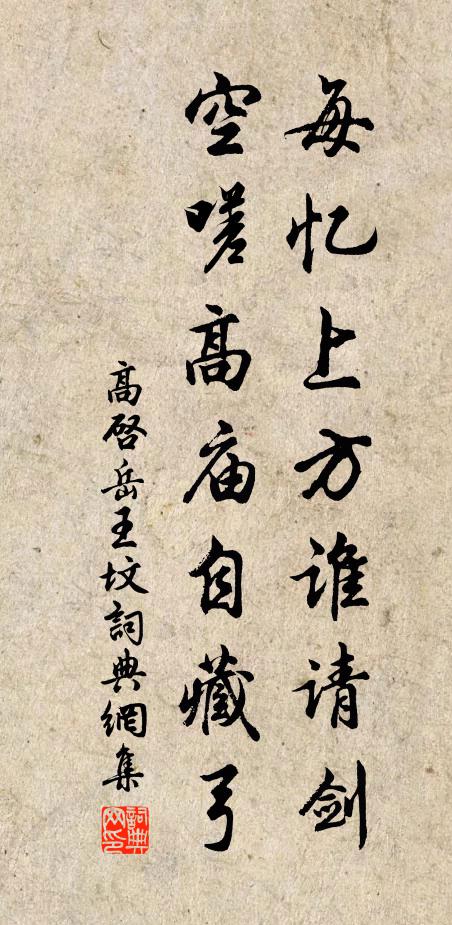 每忆上方谁请剑
空嗟高庙自藏弓
高啓岳王坟詞典網集
詞典网印